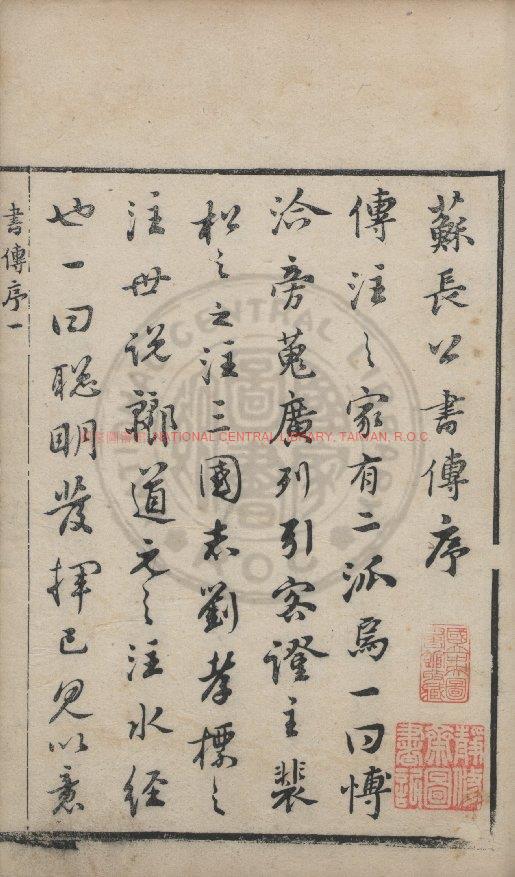 蘇長公書傳序
傳注之家有二派焉一曰博
洽旁蒐廣列引客證主裴
松之之注三國志劉孝標之
注世說酈道元之注水經
也一曰聰明發揮已見以意
書傳序一
國家圖書館藏
NATIONAL CENTRAL LIBRARY, TAIWAN, R.O.C.